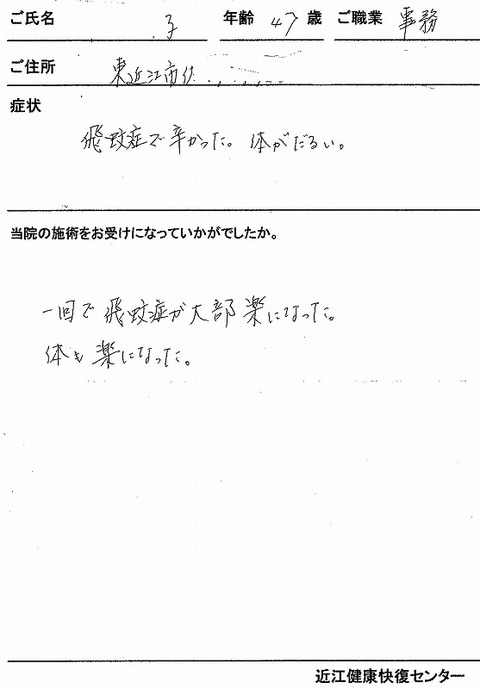 ご氏名 子 年齢 47 歳 ご職業 事務
ご住所 東近江市
症状
飛蚊症で辛かった。体がだるい。
当院の施術をお受けになっていかがでしたか。
一回で飛蚊症が大部楽になった。
体も楽になった。
近江健康快復センター